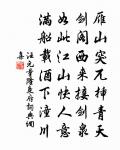 雁山突兀插青天
劍閣西來接劍泉
如此江山快人意
滿船載酒下潼川
汪元量隆慶府詩典詞
集